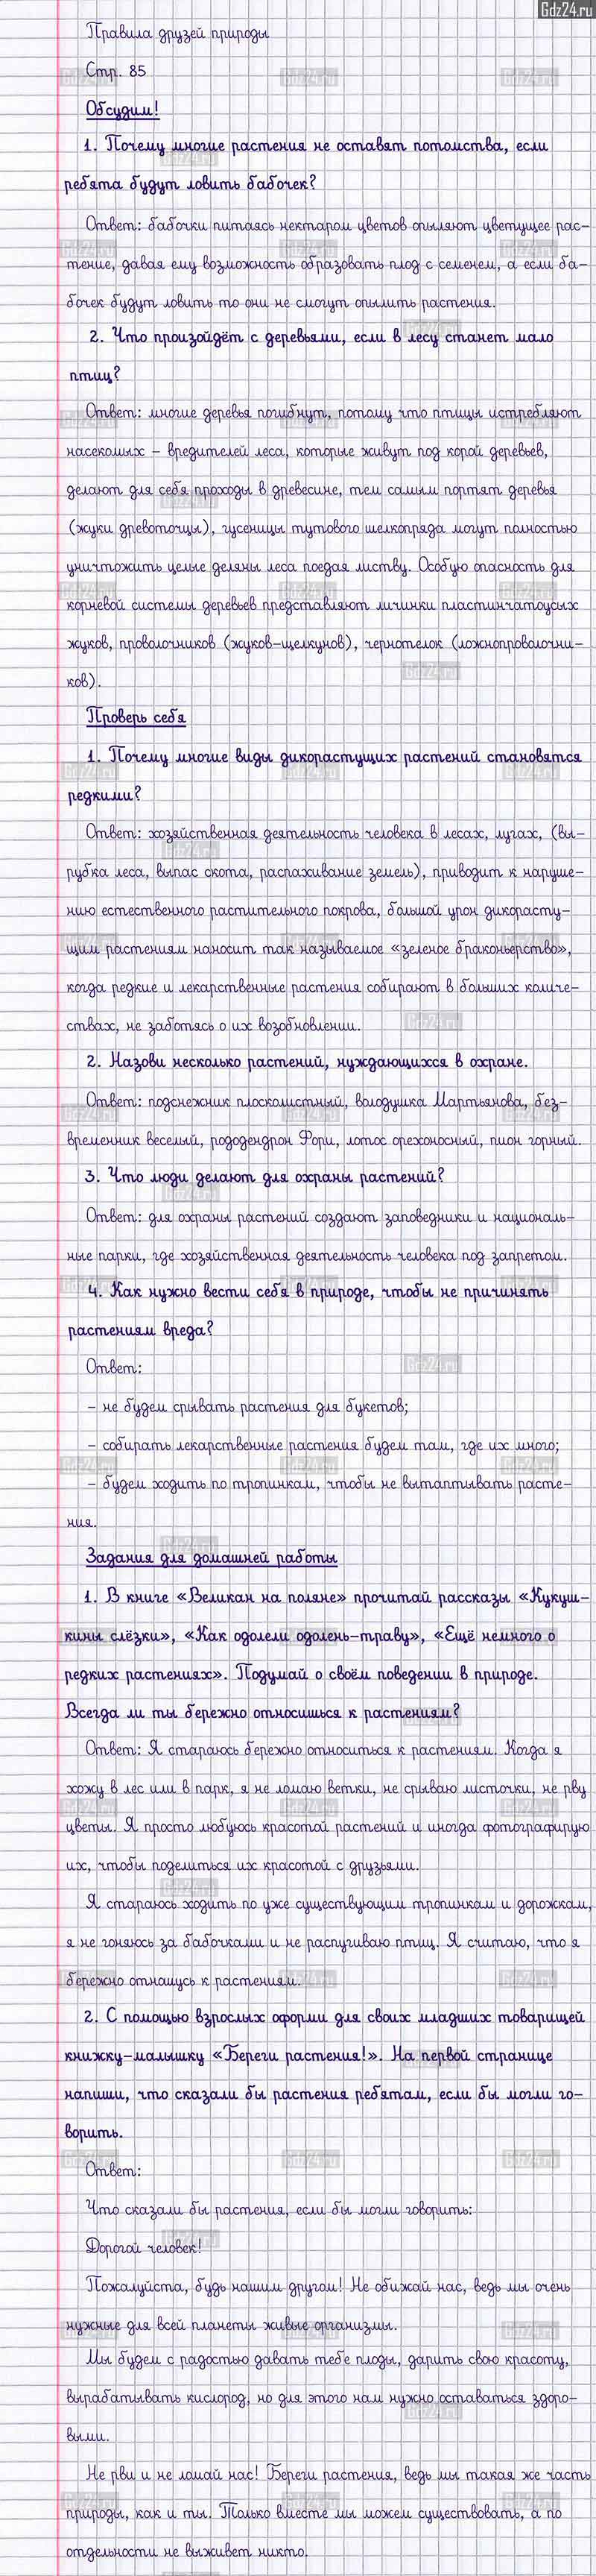 Gdz24.ru
Правила друзей природы
Стр. 85
Обсудим!
1. Почему многие растения не оставят потомства, если
ребята будут ловить бабочек?
Ответ: бабочки питаясь нектаром цветов опыляют цветущее рас-
тение, давая ему возможность образовать плод с семенем, а если ба-
бочек будут ловить то они не смогут опылить растения.
2. Что произойдёт с деревьями, если в лесу станет мало
птиц?
Ответ: многие деревья погибнут, потому что птицы истребляют
насекомых – вредителей леса, которые живут под корой деревьев,
делают для себя проходы в древесине, тем самым портят деревья
(жуки древоточцы), гусеницы тутового шелкопряда могут полностью
уничтожить целые деляны леса поедая листву. Особую опасность для
корневой системы деревьев представляют личинки пластинчатоусых
жуков, проволочников (жуков-щелкунов), чернотелок (ложнопроволочни-
ков).
Проверь себя
1. Почему многие виды дикорастущих растений становятся
редкими?
Ответ: хозяйственная деятельность человека в лесах, лугах, (вы-
рубка леса, выпас скота, распахивание земель), приводит к наруше-
нию естественного растительного покрова, большой урон дикорасту-
щим растениям наносит так называемое «зеленое браконьерство»,
когда редкие и лекарственные растения собирают в больших количе-
ствах, не заботясь о их возобновлении.
2. Назови несколько растений, нуждающихся в охране.
Ответ: подснежник плосколистный, володушка Мартьянова, без-
временник веселый, рододендрон Фори, лотос орехоносный, пион горный.
3. Что люди делают для охраны растений?
Ответ: для охраны растений создают заповедники и националь-
ные парки, где хозяйственная деятельность человека под запретом.
4. Как нужно вести себя в природе, чтобы не причинять
растениям вреда?
Ответ:
– не будем срывать растения для букетов;
– собирать лекарственные растения будем там, где их много;
– будем ходить по тропинкам, чтобы не вытаптывать расте-
ния.
Задания для домашней работы
1. В книге «Великан на поляне» прочитай рассказы «Кукуш-
кины слёзки», «Как одолели одолень-траву», «Ещё немного о
редких растениях». Подумай о своём поведении в природе.
Всегда ли ты бережно относишься к растениям?
Ответ: Я стараюсь бережно относиться к растениям. Когда я
хожу в лес или в парк, я не ломаю ветки, не срываю листочки, не рву
цветы. Я просто любуюсь красотой растений и иногда фотографирую
их, чтобы поделиться их красотой с друзьями.
Я стараюсь ходить по уже существующим тропинкам и дорожкам,
я не гоняюсь за бабочками и не распугиваю птиц. Я считаю, что я
бережно отношусь к растениям.
2. С помощью взрослых оформи для своих младших товарищей
книжку-малышку «Береги растения!». На первой странице
напиши, что сказали бы растения ребятам, если бы могли го-
ворить.
Ответ:
Что сказали бы растения, если бы могли говорить:
Дорогой человек!
Пожалуйста, будь нашим другом! Не обижай нас, ведь мы очень
нужные для всей планеты живые организмы.
Мы будем с радостью давать тебе плоды, дарить свою красоту,
вырабатывать кислород, но для этого нам нужно оставаться здоро-
выми.
Не рви и не ломай нас! Береги растения, ведь мы такая же часть
природы, как и ты. Только вместе мы можем существовать, а по
отдельности не выживет никто.